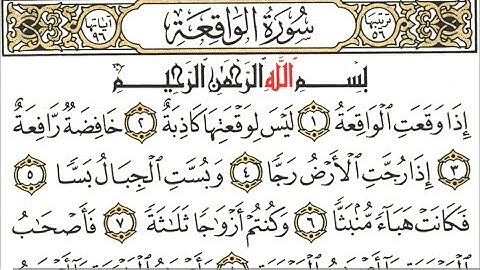 ترتيبها ٥٦ سُورَةُ الْوَاقِعَةِ آياتها ٩٦
بِسْمِ اللَّهِ الرَّحْمَٰنِ الرَّحِيمِ
إِذَا وَقَعَتِ ٱلْوَاقِعَةُ ١ لَيْسَ لِوَقْعَتِهَا كَاذِبَةٌ ٢ خَافِضَةٌ رَّافِعَةٌ
٣ إِذَا رُجَّتِ ٱلْأَرْضُ رَجًّا ٤ وَبُسَّتِ ٱلْجِبَالُ بَسًّا ٥
فَكَانَتْ هَبَآءً مُّنۢبَثًّا ٦ وَكُنتُمْ أَزْوَٰجًا ثَلَٰثَةً ٧ فَأَصْحَٰبُ